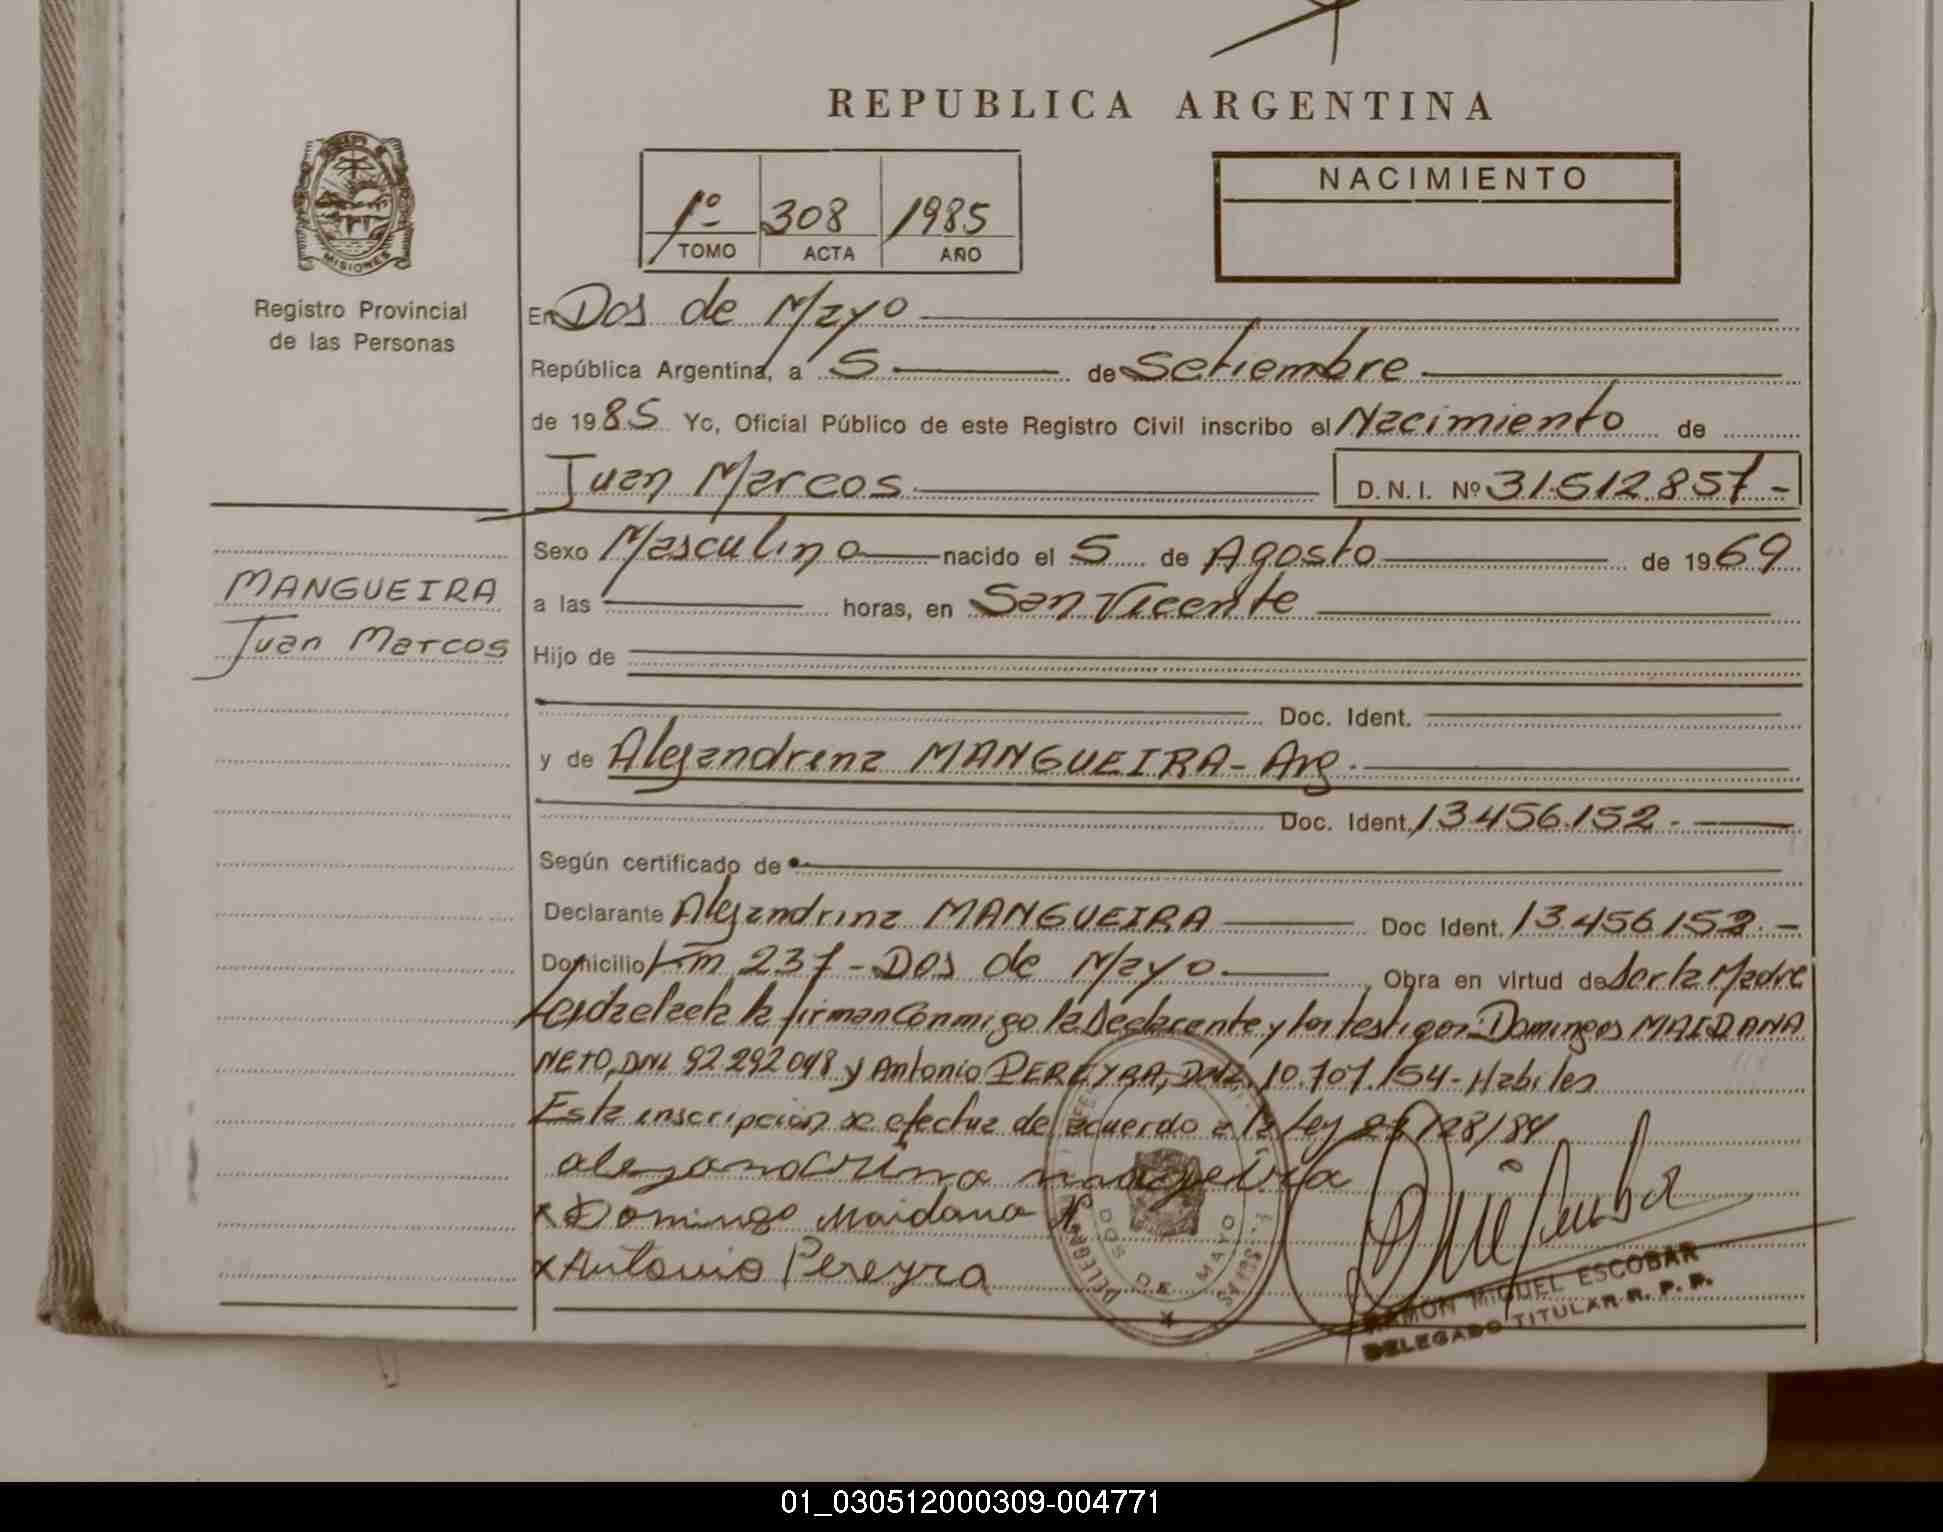 REPUBLICA ARGENTINA
MISIONES
Registro Provincial
de las Personas
1º 308 1985
TOMO ACTA AÑO
NACIMIENTO
En Dos de Mayo
República Argentina, a 5 de Setiembre
de 1985 Yo, Oficial Público de este Registro Civil inscribo el Nacimiento de
Juan Marcos D.N.I. Nº 31.512.857-
MANGUEIRA
Juan Marcos
Sexo Masculino nacido el 5 de Agosto de 1969
a las horas, en San Vicente
Hijo de
Doc. Ident.
y de Alejandrina MANGUEIRA- Arg.
Doc. Ident. 13.456.152.-
Según certificado de
Declarante Alejandrina MANGUEIRA Doc Ident. 13.456.152.-
Domicilio Km 237 - Dos de Mayo Obra en virtud de ser la Madre
Leída el acta la firman conmigo la Declarante y los testigos: Domingos MAIDANA
NETO, DNI 92.292.048 y Antonio PEREYRA, DNI. 10.707.154- Habiles
Esta inscripción se efectua de acuerdo a la Ley /28/84
alejandrina
x Domingo Maidana N.
x Antonio Pereyra
DOS DE MAYO
RAMON MIGUEL ESCOBAR
DELEGADO TITULAR R. P. P.
01_030512000309-004771